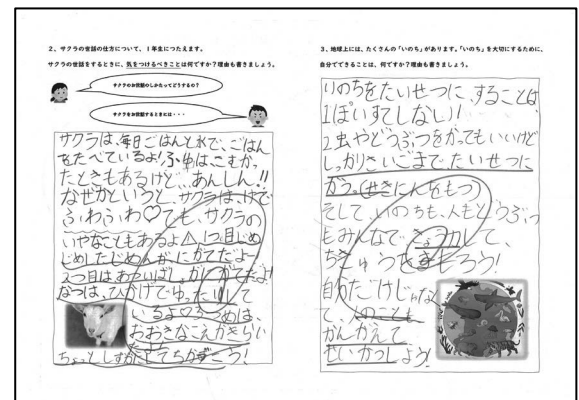 2、サクラの世話の仕方について、1年生につたえます。
サクラの世話をするときに、気をつけるべきことは何ですか？理由も書きましょう。
サクラのお世話のしかたってどうするの？
サクラをお世話するときには・・・
サクラは、毎日ごはんと水で、ごはん
をたべているよ！ふゆはこすむかっ
たときもあるけど、あんしん!!
なぜかというと、サクラは、けで
ふわふわ♡でも、サクラの
いやなこともあるよ△1つ目じめ
じめしたじめんがにがてだよー
2つ目はあついばしょがにがてだよ!
なつは、ひかげでゆったりして
いるよ♡3つめは、
おおきなこえがきらい
ちょっとしずかにしてちかずこう!
3、地球上には、たくさんの「いのち」があります。「いのち」を大切にするために、
自分でできることは、何ですか？理由も書きましょう。
いのちをたいせつに、することは
1ぽいすてしない!
2虫やどうぶつをかってもいいけど
しっかりさいごまで、たいせつに
かう。(せきにんをもつ)
そして、いのちも、人もどうぶつ
もみんなで、きょう力して、
ちきゅうをまもろう!
自分だけじゃな
く、人のことも
かんがえて
せいかつしよう!